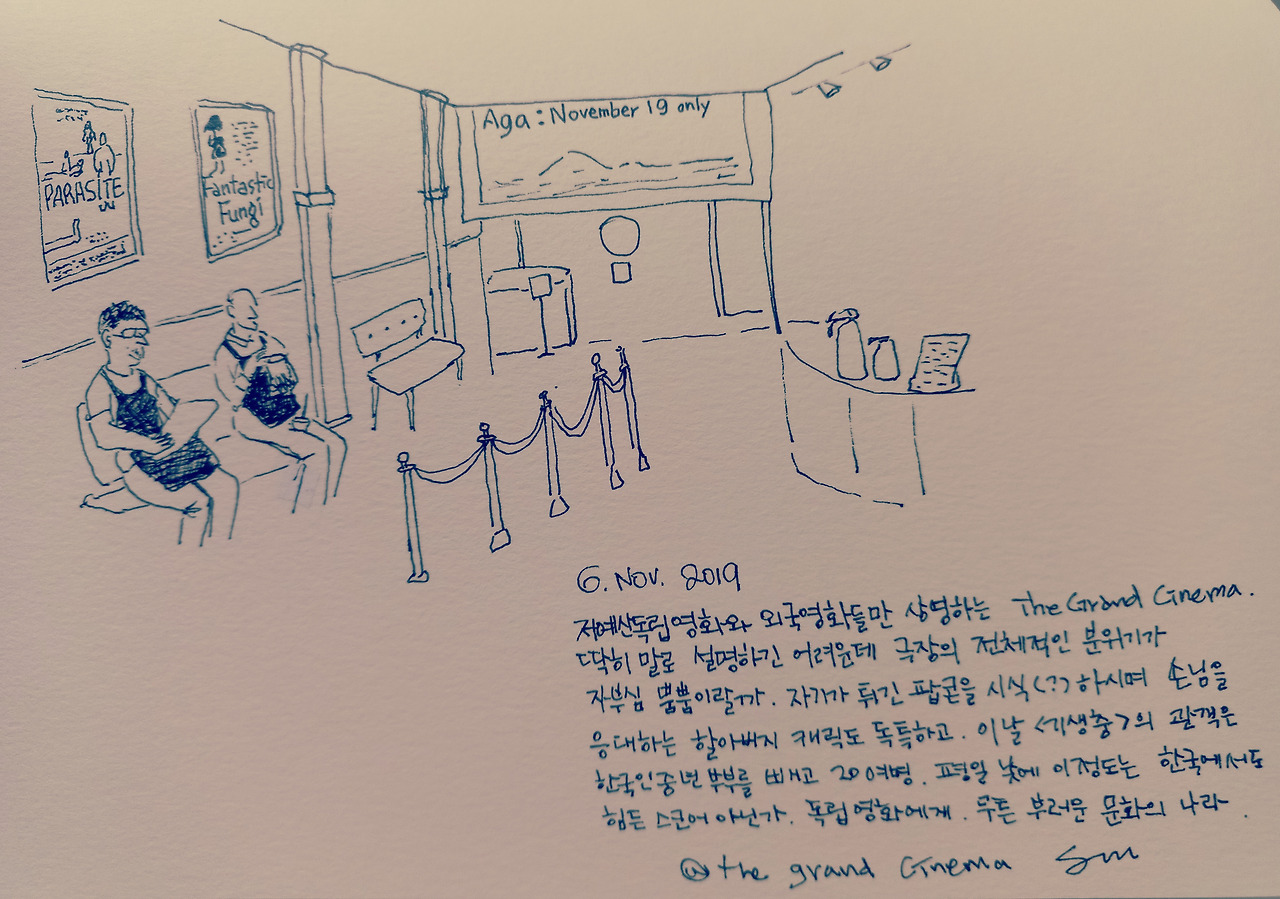 Aga : November 19 only
PARASITE
Fantastic
Fungi
6. NOV. 2019
저예산독립영화와 외국영화들만 상영하는 The Grand Cinema.
딱히 말로 설명하긴 어려운데 극장의 전체적인 분위기가
자부심 뿜뿜이랄까. 자기가 튀긴 팝콘을 시식(?)하시며 손님을
응대하는 할아버지 캐릭도 독특하고. 이날 <기생충>의 관객은
한국인중년부부를 빼고 20여명. 평일 낮에 이정도는 한국에서도
힘든 스코어 아닌가. 독립영화에게. 무튼 부러운 문화의 나라.
@ the grand Cinema